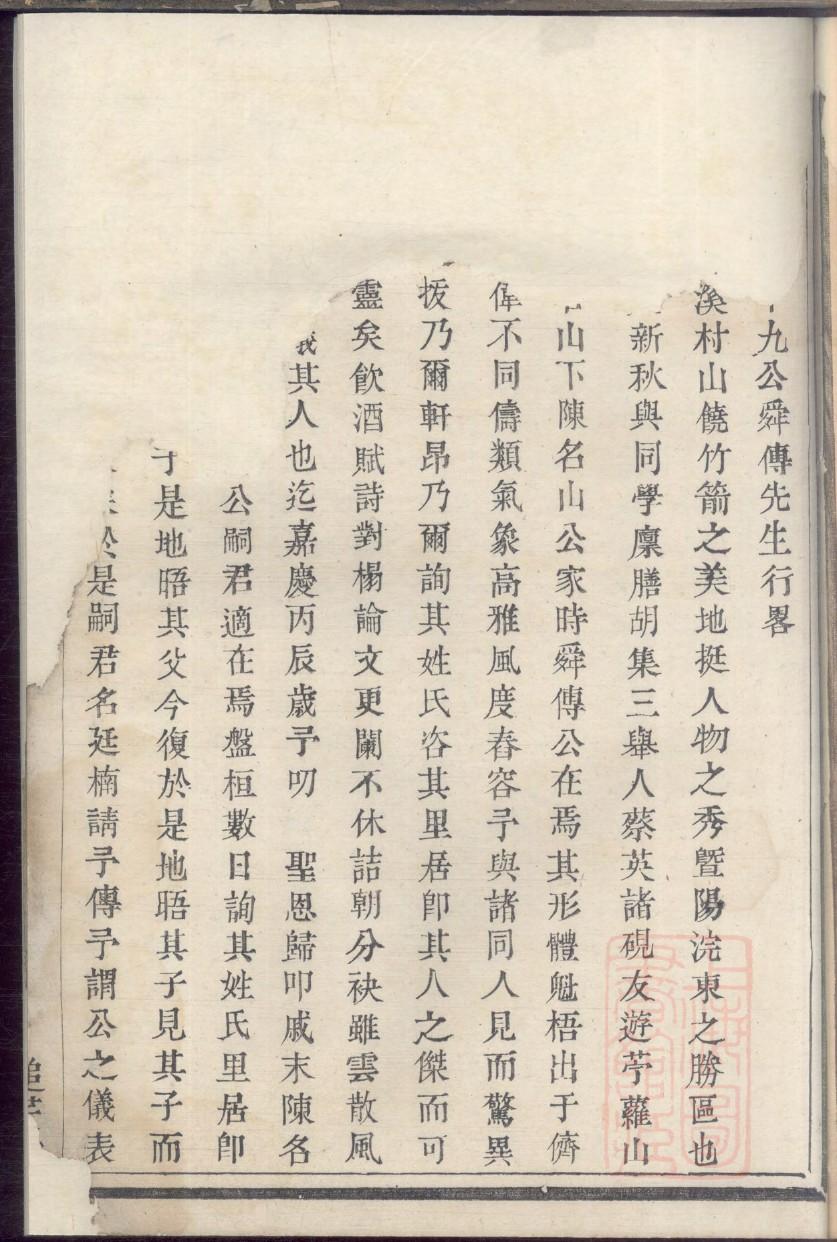 九公舜傳先生行畧
溪村山饒竹箭之美地挺人物之秀曁陽浣東之勝區也
新秋與同學廩膳胡集三舉人蔡英諸硯友遊苧蘿山
山下陳名山公家時舜傳公在焉其形體魁梧出于儕
偉不同儔類氣象高雅風度舂容予與諸同人見而驚異
拔乃爾軒昂乃爾詢其姓氏咨其里居卽其人之傑而可
靈矣飮酒賦詩對榻論文更闌不休詰朝分袂雖雲散風
我其人也迄嘉慶丙辰歲予叨　聖恩歸叩戚末陳名
公嗣君適在焉盤桓數日詢其姓氏里居卽
于是地晤其父今復於是地晤其子見其子而
於是嗣君名廷楠請予傳予謂公之儀表